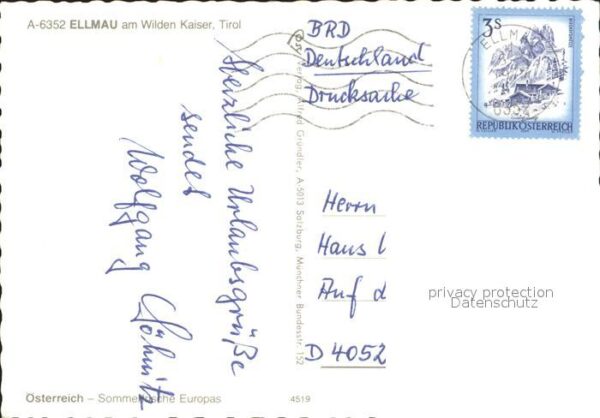 A-6352 ELLMAU am Wilden Kaiser, Tirol
Herzliche Urlaubsgrüße
sendet
Wolfgang
Verlag Alfred Gründler, A-5013 Salzburg, Münchner Bundesstr. 152
BRD
Deutschland
Drucksache
3 S
ELLMAU
REPUBLIK ÖSTERREICH
Herrn
Hans
Auf d
D 4052
privacy protection
Datenschutz
Österreich – Sommerfrische Europas
4519